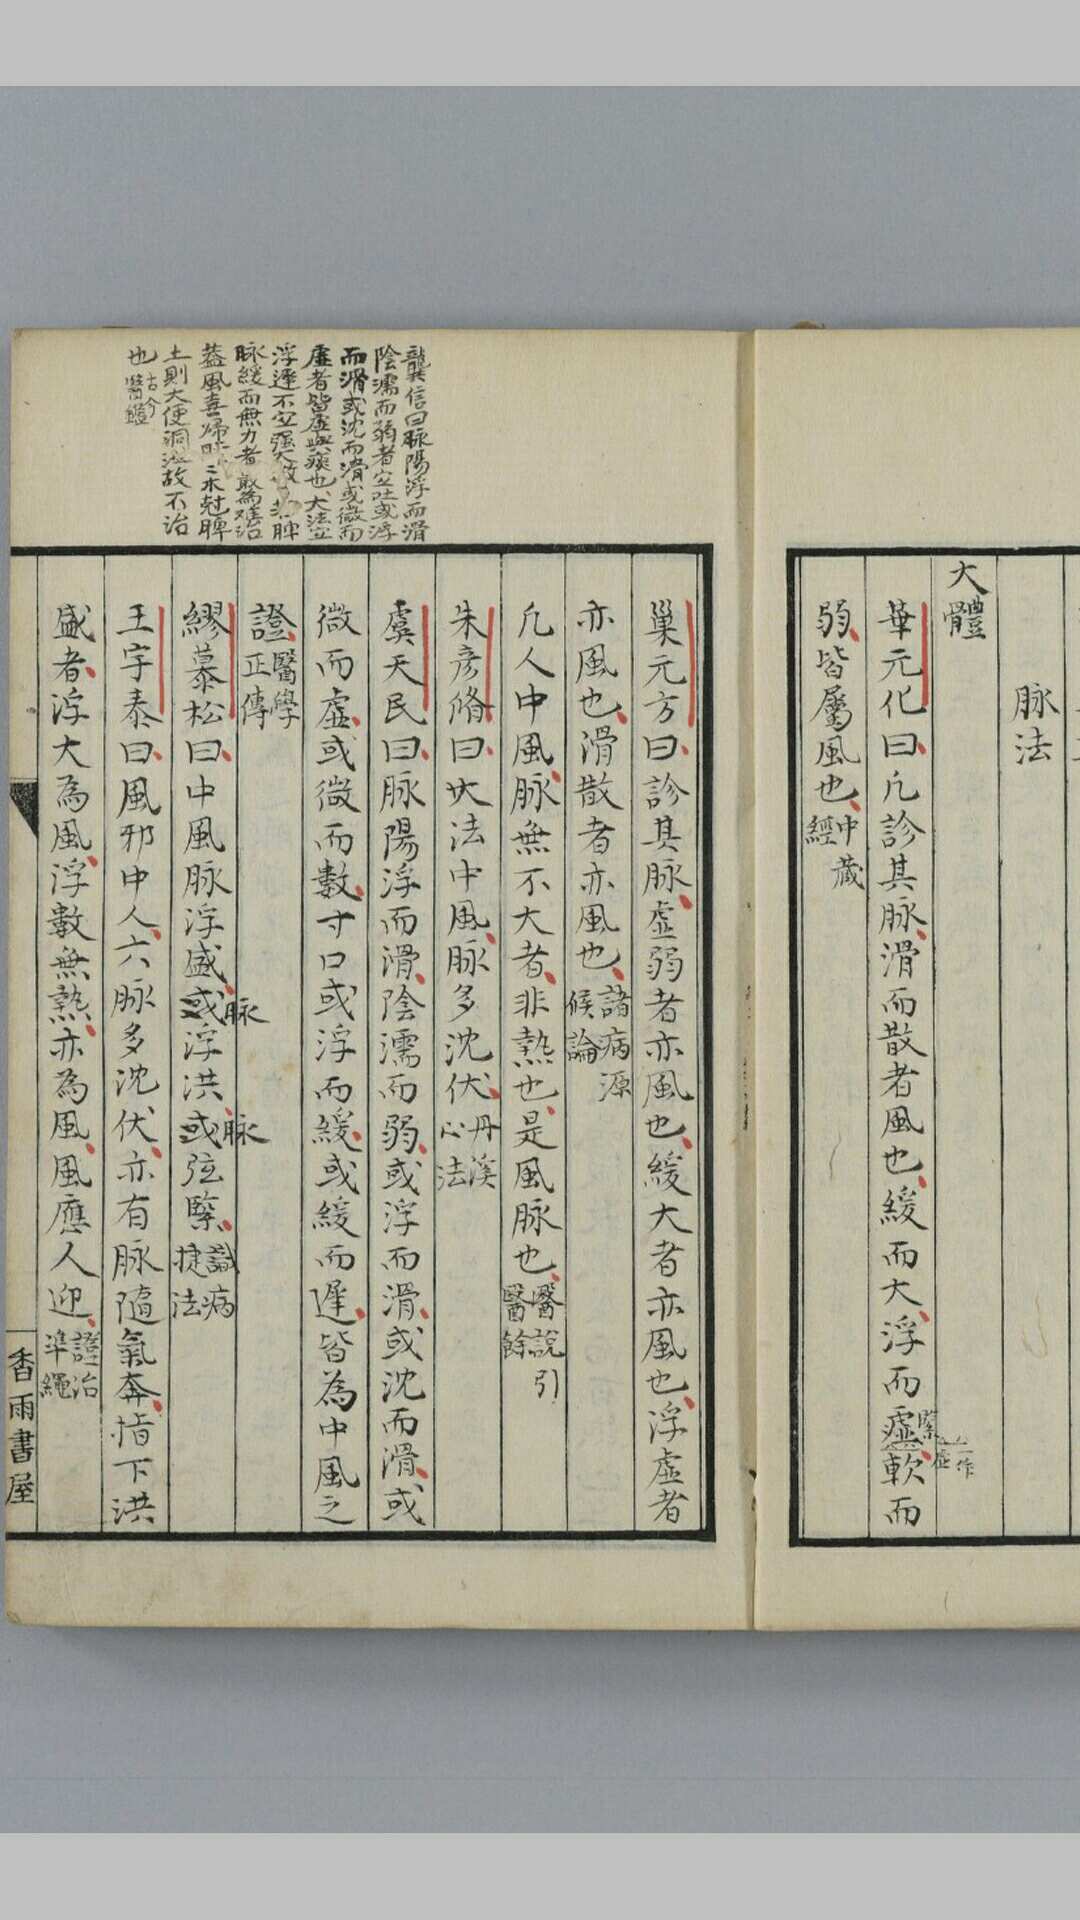 脉法
大體
華元化曰凡診其脉滑而散者風也緩而大浮而虛軟而
緊
一作虛
弱皆屬風也中藏經
巢元方曰診其脉虛弱者亦風也緩大者亦風也浮虛者
亦風也滑散者亦風也諸病源候論
凡人中風脉無不大者非熱也是風脉也醫說引醫餘
朱彥脩曰大法中風脉多沈伏丹溪心法
虞天民曰脉陽浮而滑陰濡而弱或浮而滑或沈而滑或
微而虛或微而數寸口或浮而緩或緩而遲皆為中風之
證醫學正傳
繆慕松曰中風脉浮盛或浮洪或弦緊識病捷法
脉
脉
王宇泰曰風邪中人六脉多沈伏亦有脉隨氣奔指下洪
盛者浮大為風浮數無熱亦為風風應人迎證治準繩
龔信曰脉陽浮而滑
陰濡而弱者宜吐或浮
而滑或沈而滑或微而
虛者皆虛與痰也大法宜
浮遲不宜強大數若脾
脉緩而無力者最為難治
蓋風喜歸肝木尅脾
土則大便洞泄故不治
也古今醫鑑
香雨書屋